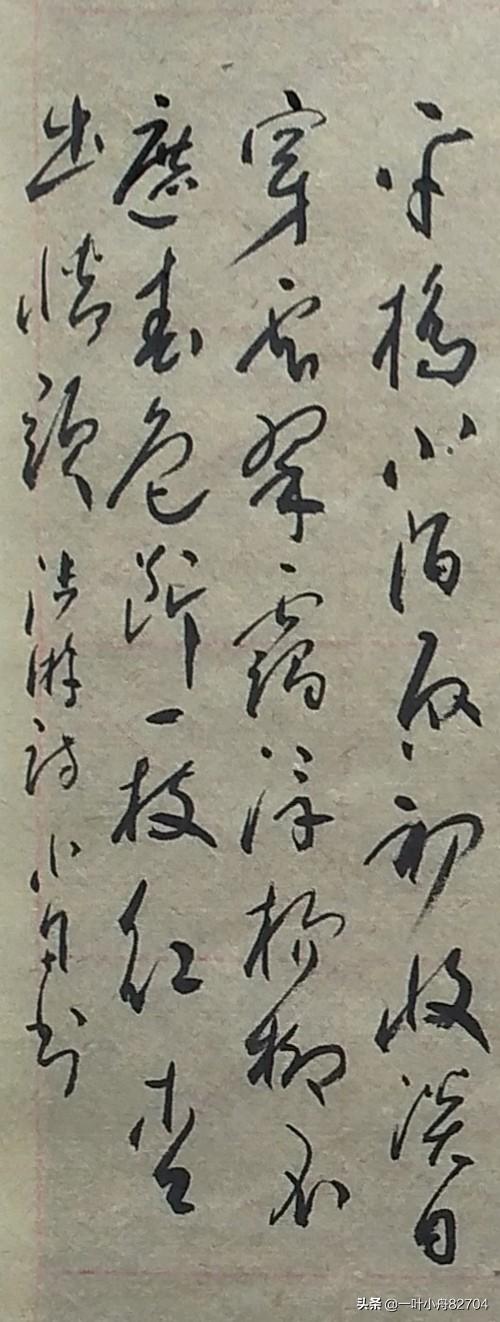 平橋小陌雨初收淡日
穿雲翠靄浮楊柳不
遮春色断一枝红杏
出墙頭 陆游诗 小舟书
头条 @一叶小舟82704